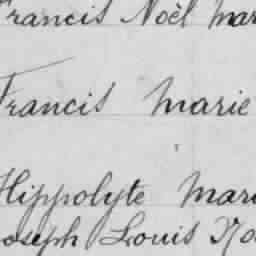 Francis Noël mar
Francis marie
Hippolyte mari
Joseph Louis No